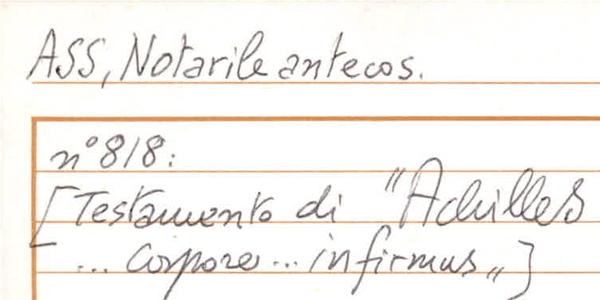 ASS, Notarile antecos.
n° 818:
[Testamento di "Achilles
... corpore ... infirmus„]